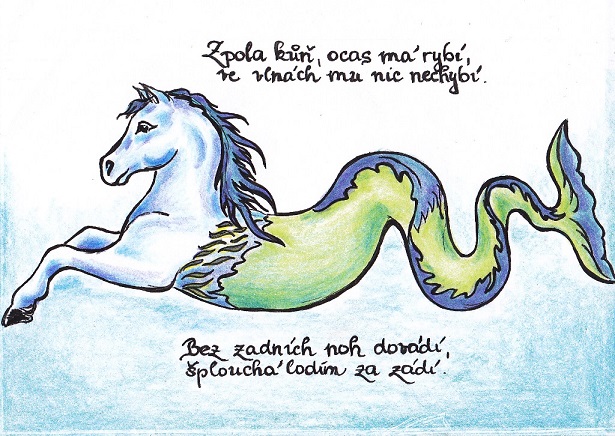 Zpola kůň, ocas má rybí,
ve vlnách mu nic nechybí.
Bez zadních noh dovádí,
šplouchá lodím za zádí.